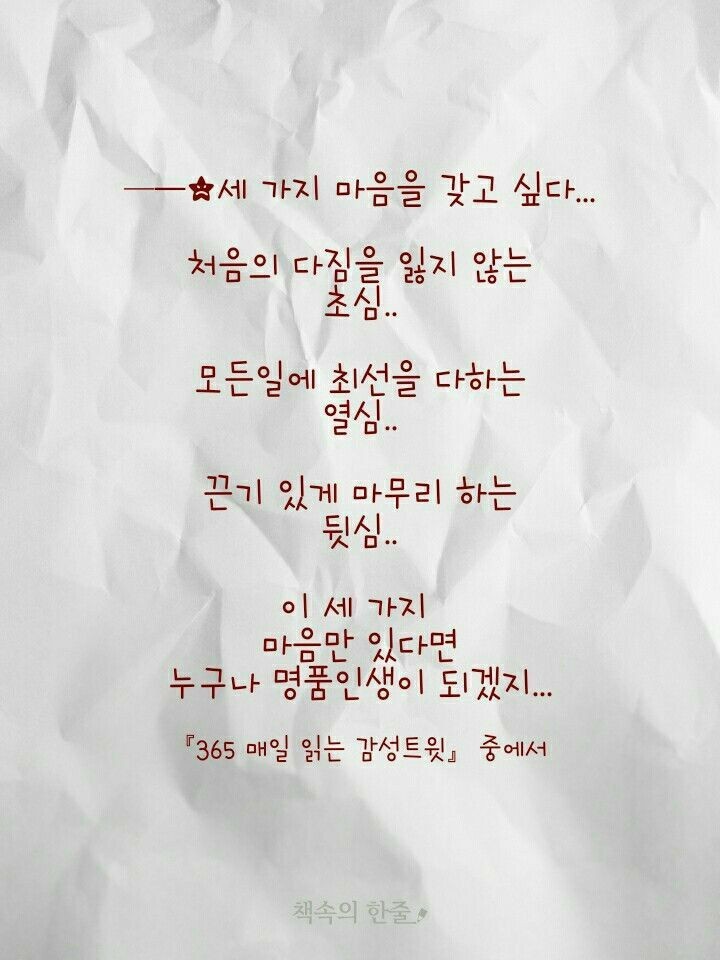 ──★세 가지 마음을 갖고 싶다...
처음의 다짐을 잃지 않는
초심..
모든일에 최선을 다하는
열심..
끈기 있게 마무리 하는
뒷심..
이 세 가지
마음만 있다면
누구나 명품인생이 되겠지...
『365 매일 읽는 감성트윗』 중에서
책속의 한줄